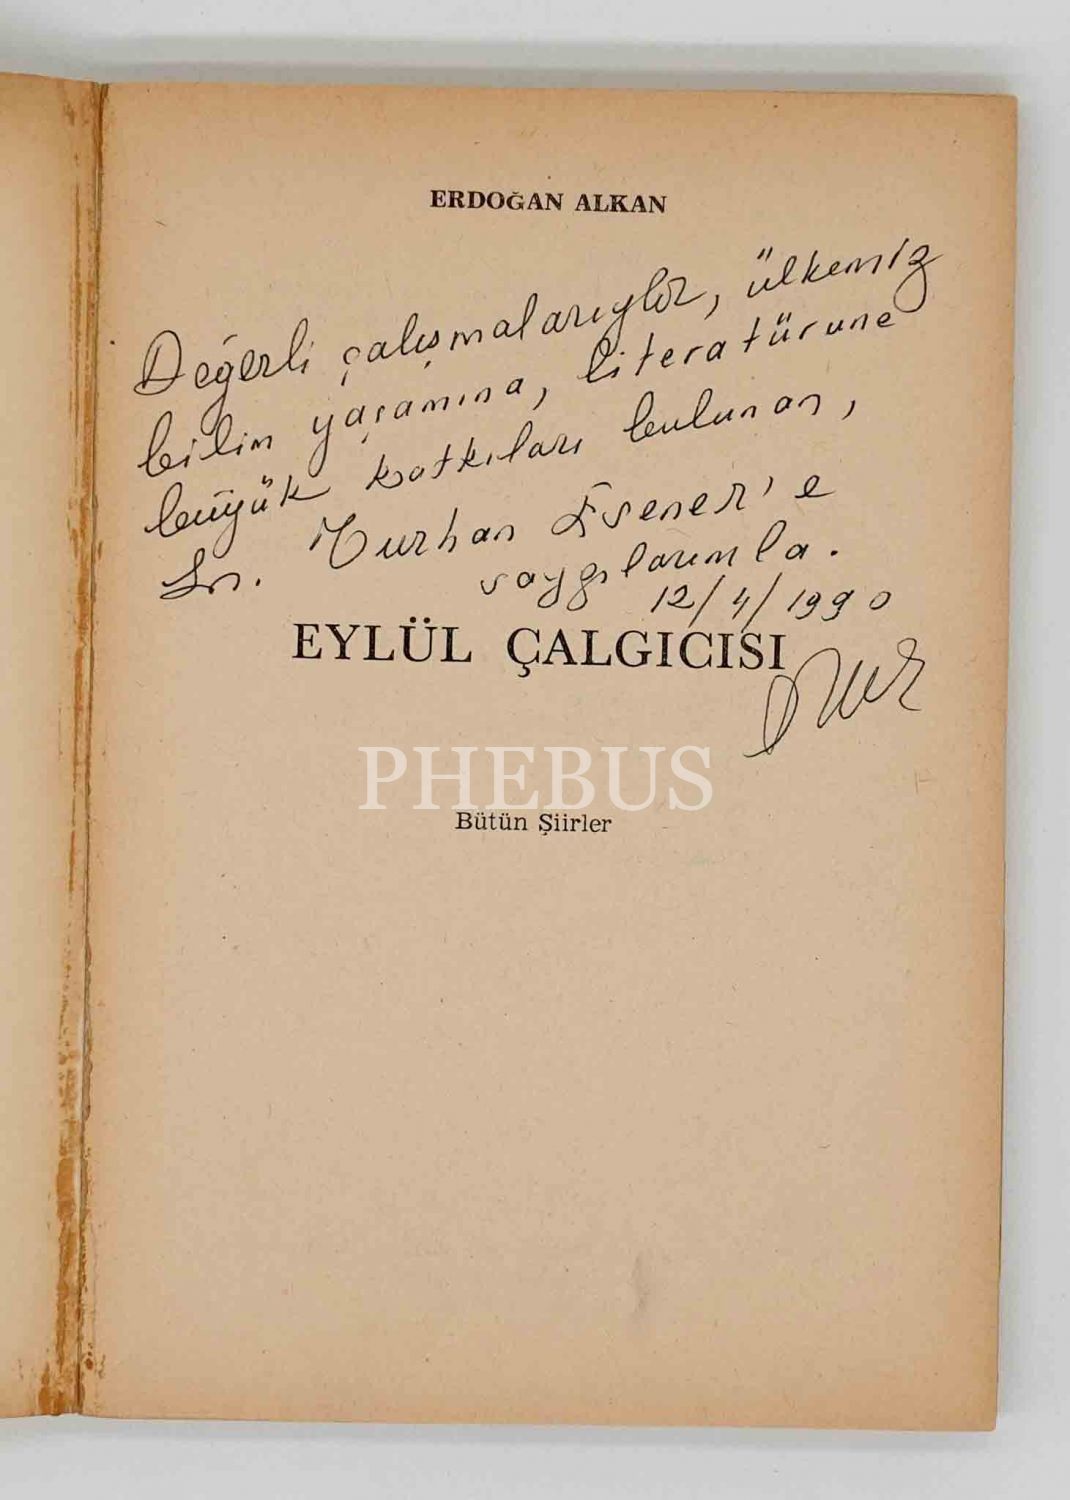 ERDOĞAN ALKAN
Değerli çalışmalarıyla, ülkemiz
bilim yaşamına, literatürüne
büyük katkıları bulunan,
Sn. Turhan Esener'e
saygılarımla.
12/4/1990
EYLÜL ÇALGICISI
PHEBUS
Bütün Şiirler